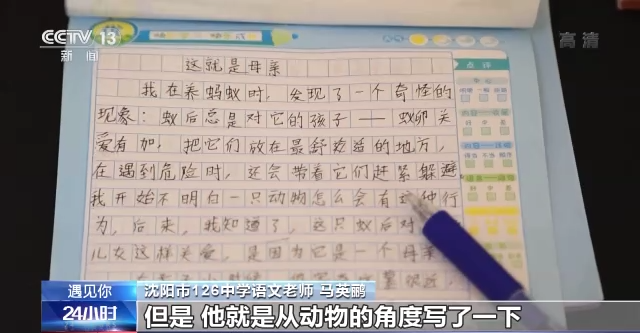 CCTV 13
新闻
高清
这就是母亲
我在养蚂蚁时，发现了一个奇怪的
现象：蚁后总是对它的孩子——蚁卵关
爱有加，把它们放在最舒适的地方，
在遇到危险时，还会带着它们赶紧躲避，
我开始不明白一只动物怎么会有这种行
为，后来，我知道了，这只蚁后对
儿女这样关爱，是因为它是一个母亲
点评
遇见你
24小时
沈阳市126中学语文老师 马英鹂
但是 他就是从动物的角度写了一下